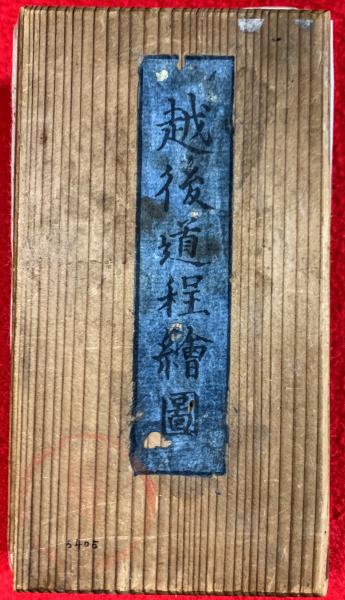 越後道程繪圖
5405